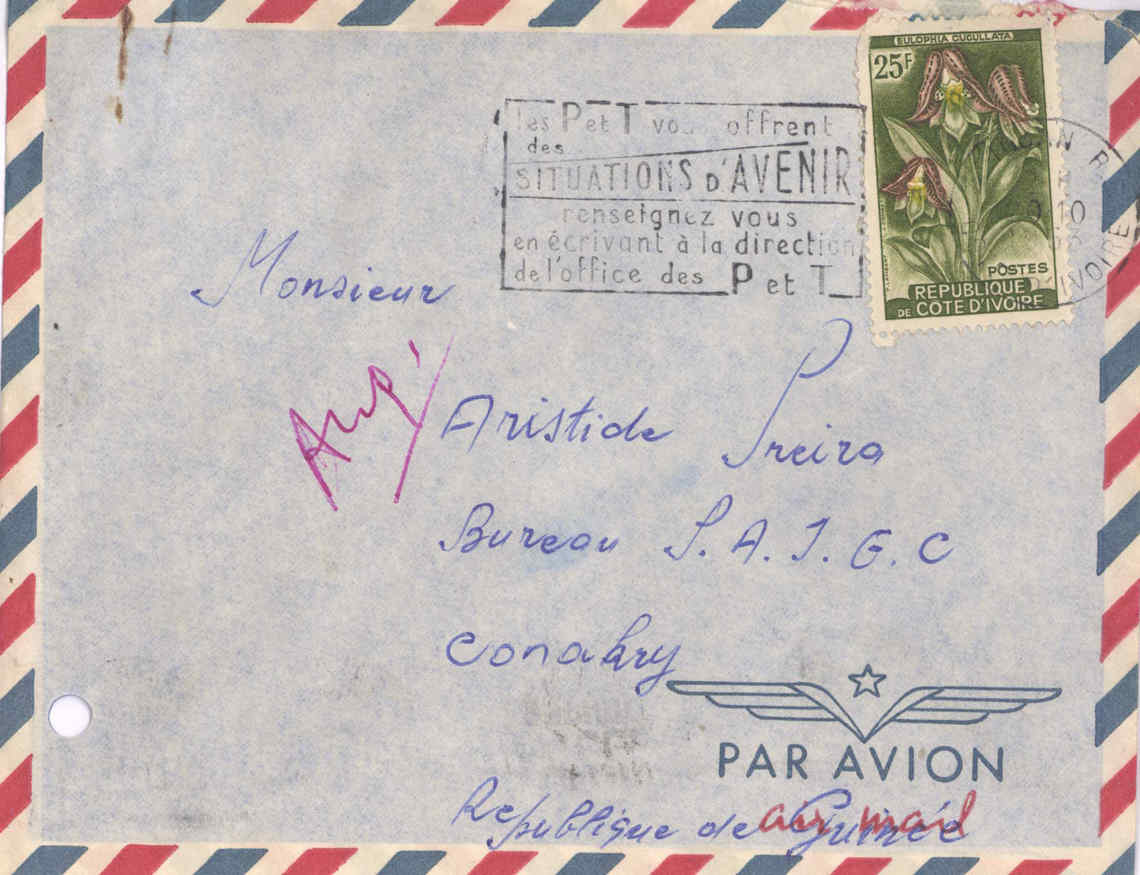 EULOPHIA CUCULLATA
25F
POSTES
REPUBLIQUE
DE CÔTE D'IVOIRE
les P et T vous offrent
des
SITUATIONS D'AVENIR
renseignez vous
en écrivant à la direction
de l'office des P et T
10
IVOIRE
Monsieur
Arq/
Aristide Preira
Bureau P. A. I. G. C
Conakry
PAR AVION
Republique de Guinée
air mail